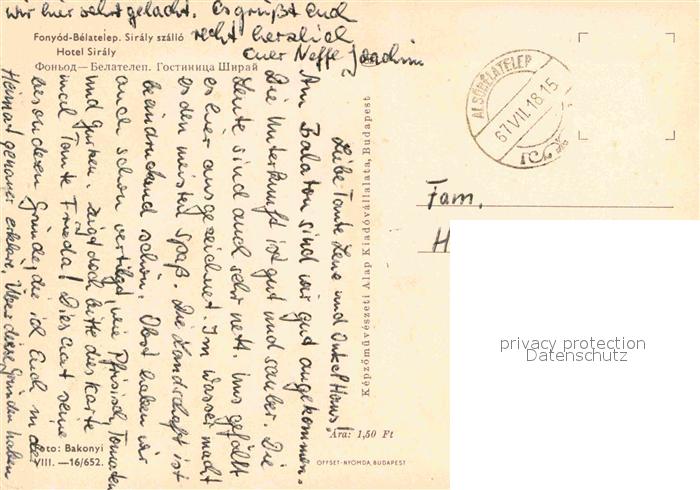 Fonyód-Bélatelep. Sirály szálló
Hotel Sirály
Фоньод—Белателеп. Гостиница Ширай
Liebe Tante Lene und Onkel Hans!
Am Balaton sind wir gut angekommen.
Die Unterkunft ist gut und sauber. Die
Leute sind auch sehr nett. Uns gefällt
es hier ausgezeichnet. Im Wasser macht
es den meisten Spaß. Die Landschaft ist
beeindruckend schön. Obst haben wir
auch schon vertilgt, wie Pfirsich, Tomaten
und Gurken. Zeigt doch bitte das Karte
mal Tante Frieda! Dies hat seine
besonderen Gründe, die ich Euch in der
Heimat genauer erkläre. Über diese Gründe haben
wir hier sehr gelacht. Es grüßt Euch
recht herzlich
Euer Neffe Joachim
Képzőművészeti Alap Kiadóvállalata, Budapest
ALSÓBÉLATELEP
67 VII. 18. 15
Fam.
H
privacy protection
Datenschutz
Foto: Bakonyi
VIII. —16/652.
Ára: 1,50 Ft
OFFSET-NYOMDA, BUDAPEST